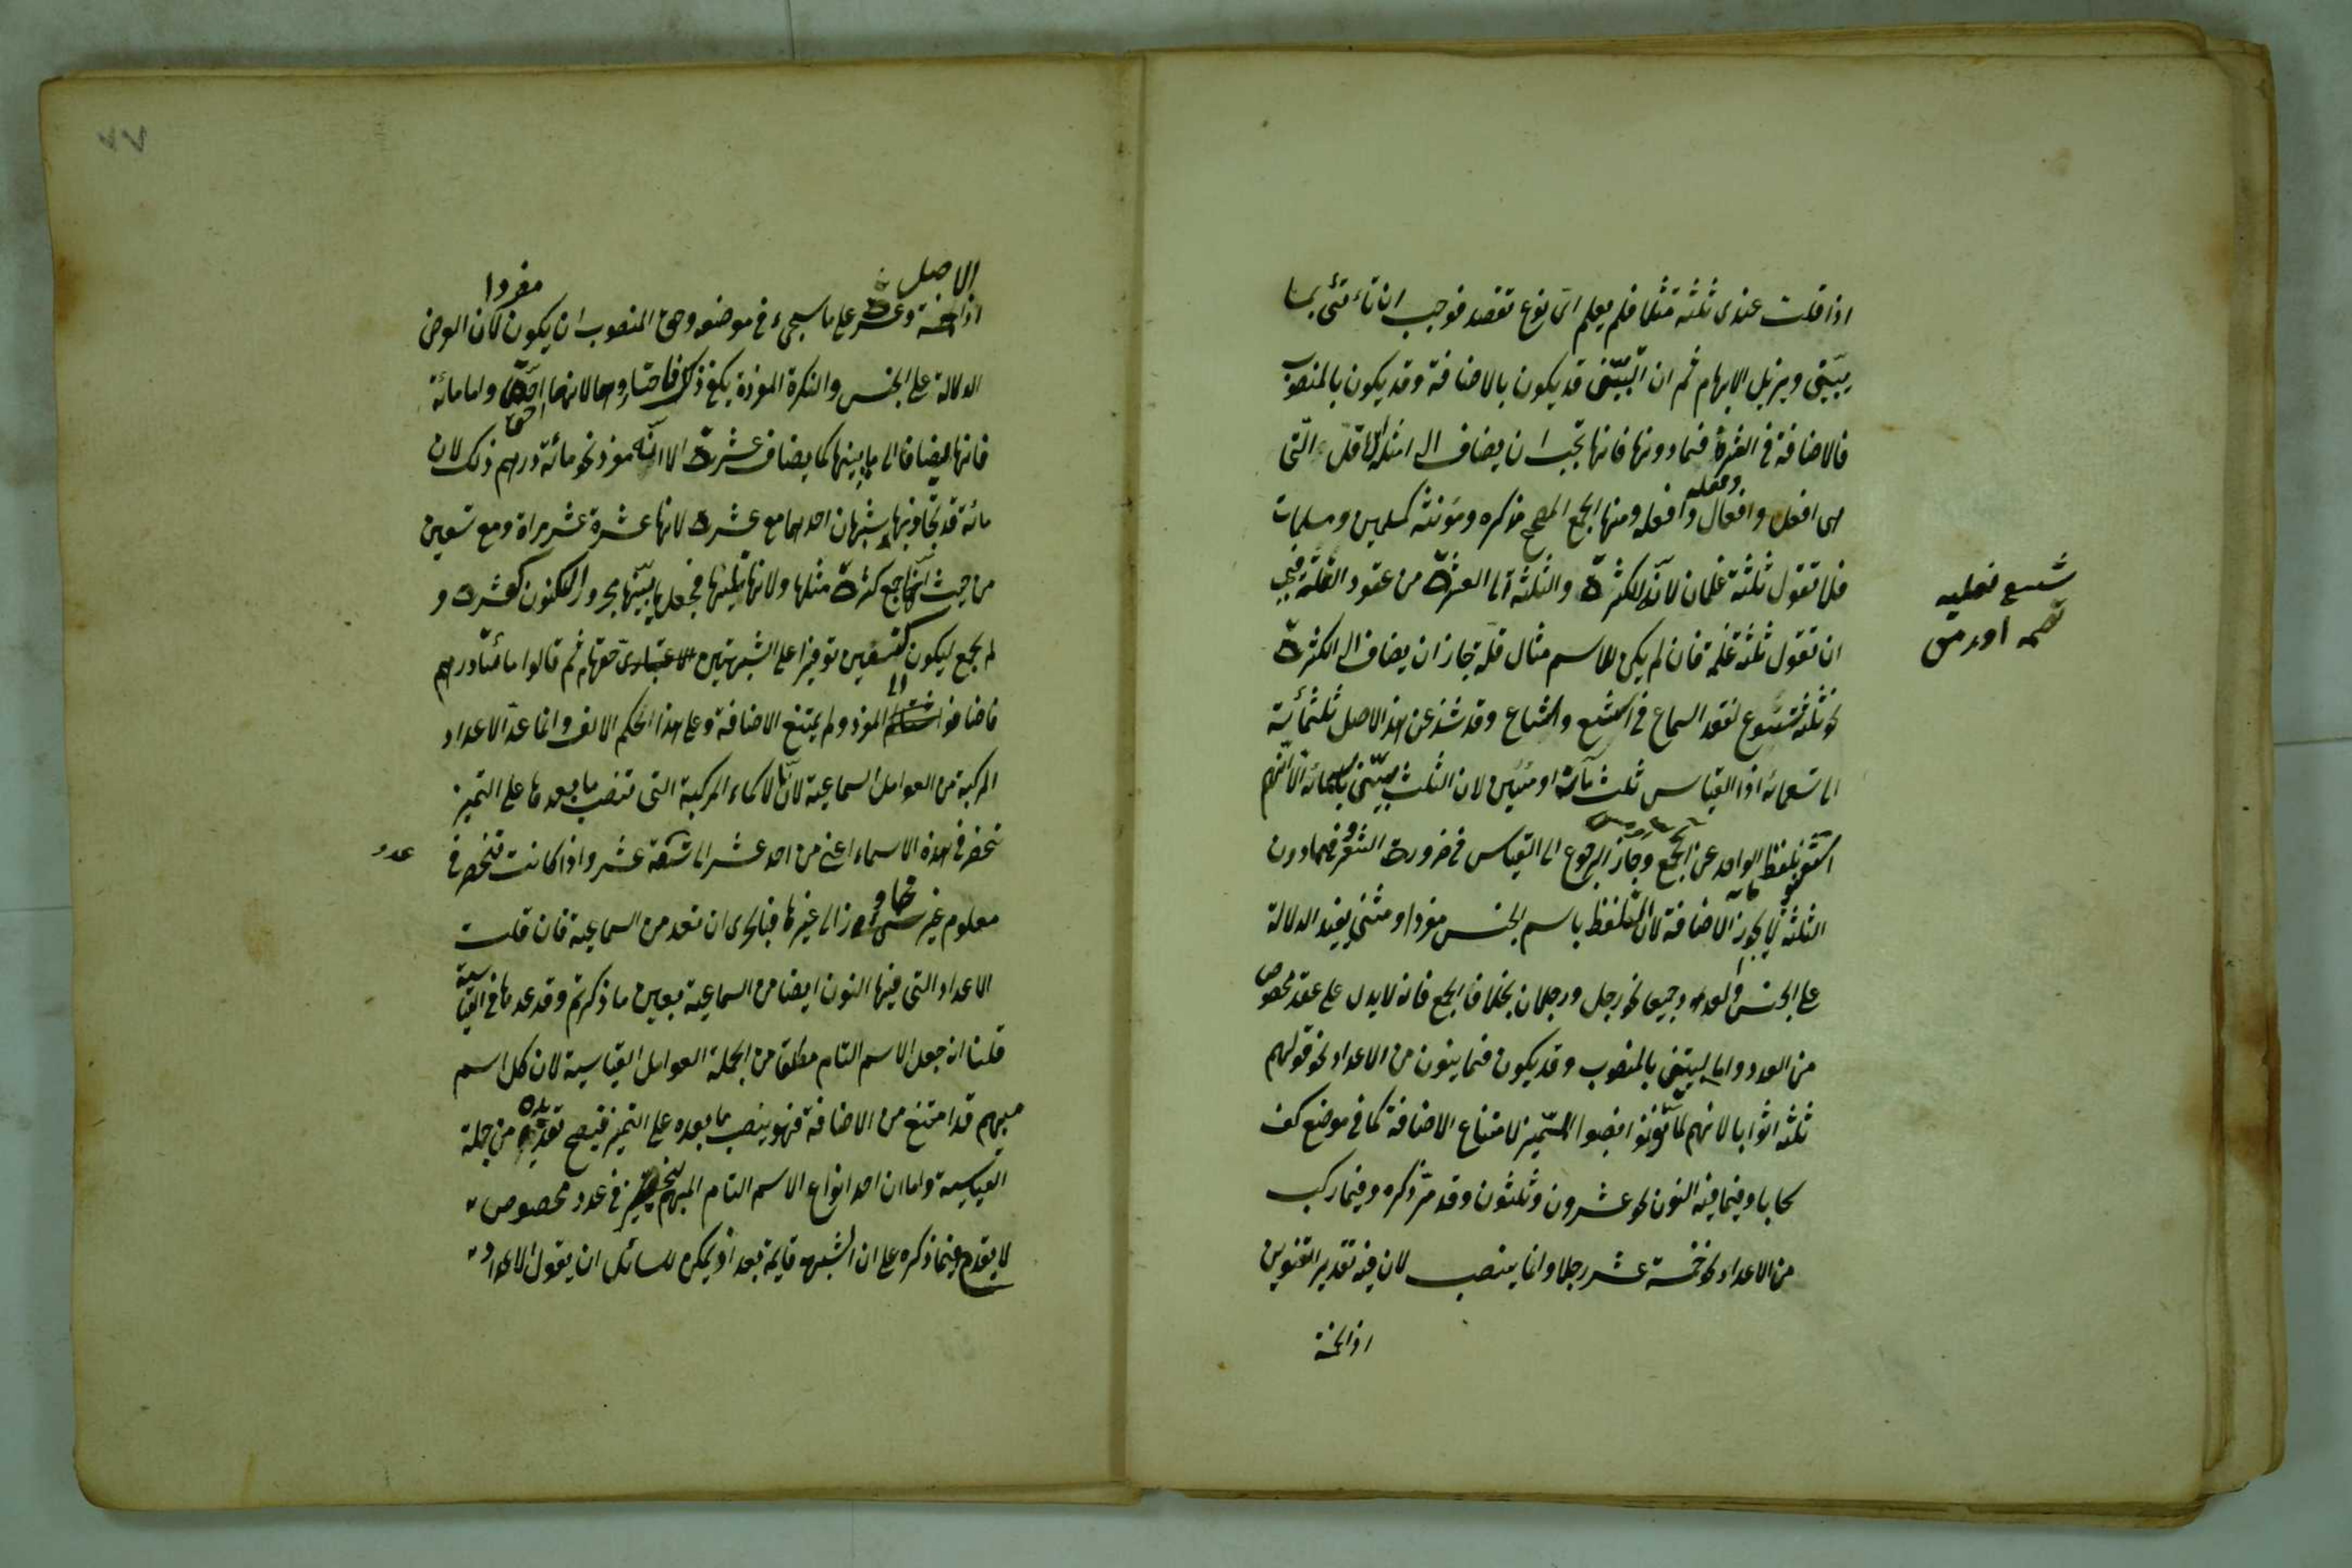 اذا قلت عندى ثلثة مثلا فلم يعلم اى نوع تقصد فوجب ان تأتى بما
يبيّن ويزيل الابهام ثم ان التبيين قد يكون بالاضافة وقد يكون بالمنصوب
فالاضافة فى العشرة فما دونها فانها تجب ان يضاف الى امثلة القلة التى
هى افعل وافعال وافعله وفعله ومنها الجمع المصحح مذكره ومؤنثه كمسلمين ومسلمات
فلا تقول ثلثة غلمان لانّه للكثرة والثلثة الى العشرة من عقود القلّة فيجب
ان تقول ثلثة غلمة فان لم يكن للاسم مثال قلّة جاز ان يضاف الى الكثرة
نحو ثلثة شسوع لفقد السماع فى اشسع واشساع وقد شذ عن هذا الاصل ثلثمائة
الى تسعمائة اذ القياس ثلث مآت او مئين لان الثلث الا انهم
بلفظ الواحد عن الجمع وجاز الرجوع الى القياس فى ضرورت الشعر وفيما دون
الثلثة لا يجوز الاضافة لان التلفظ باسم الجنس مفردا ومثنى يفيد الدلالة
على الجنس والعدد جميعا نحو رجل ورجلان بخلاف الجمع فانه لا يدل على عقد مخصوص
من العدد واما بالمنصوب وقد يكون فيما ينون من الاعداد نحو قولهم
ثلثة اثوابا لانهم لمّا نوّنوا نصبوا المميز لامتناع الاضافة كما فى موضع كف
سحابا وفيما فيه النون نحو عشرون وثلثون وقد مرّ ذكره وفيما ركب
من الاعداد نحو خمسة عشر رجلا وانما ينصب لان فيه تقدير التنوين
اذ الخمسة
شسع نعليه
الاصل
مفردا
اذ خمسة وعشر على ما سيجيء فى موضعه وحق المنصوب ان يكون لان الغرض
الدلالة على الجنس والنكرة المفردة يكفى ذلك لانها اخف واما مائة
فانها يضاف الى ما يبينها كما يضاف عشرة الا انّه مفرد نحو مائة درهم ذلك لان
مائة قد تجاذبها شبهان احدهما مع عشرة لانها عشرة عشر مراة ومع تسعين
من حيث انها جمع كثرة مثلها ولانها تليها فجعل ما يبيّنها مجرورا ليكون كعشرة و
لم يجمع ليكون كتسعين توفيرا على الشبهين حقها ثم قالوا مائتا درهم
فاضافوا الى المفرد ولم يمتنع الاضافة وعلى هذا الحكم الالف وانما عدّ الاعداد
المركبة من العوامل السماعية لانّ الاسماء المركبة التى تنصب ما بعدها على التميز
تنحصر فى هذه الاسماء اعنى من احد عشر الى تسعة عشر واذا كانت تنحصر فى عدد
معلوم غير متجاوز الى غيرها فبالحرى ان تعد من السماعية فان قلت
الاعداد التى فيها النون ايضا من السماعية بعين ما ذكرتم وقد عدها فى القياسية
قلنا انه جعل الاسم التام مطلقا من الجملة العوامل القياسية لان كل اسم
مبهم قد امتنع من الاضافة فهو ينصب ما بعده على التميز فيصح من جملة
القياسية واما ان احد انواع الاسم التام المبهم فى عدد مخصوص
لا يقدح فيما ذكره على ان الشبهه قايمة بعد اذ يمكن للسائل ان يقول الاعداد